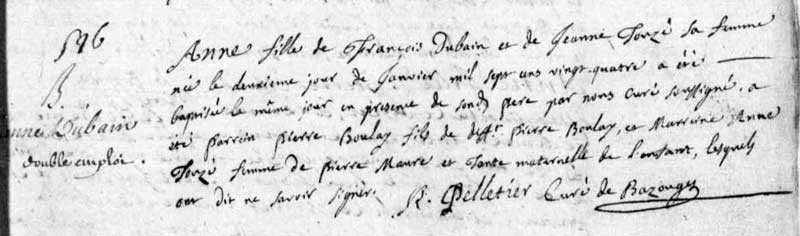 546
B.
Anne Dubain
double emploi.
Anne fille de François Dubain et de Jeanne Torzé sa femme
née le deuxieme jour de Janvier mil sept cens vingt quatre a été
baptisée le même jour en presence de sondt pere par nous Curé soussigné. a
été parrein pierre Boulay fils de defft pierre Boulay, et Marreine Anne
Torzé femme de pierre Maure et tante maternelle de l'enfant, lesquels
ont dit ne savoir signer. R. Pelletier Curé de Bazouges